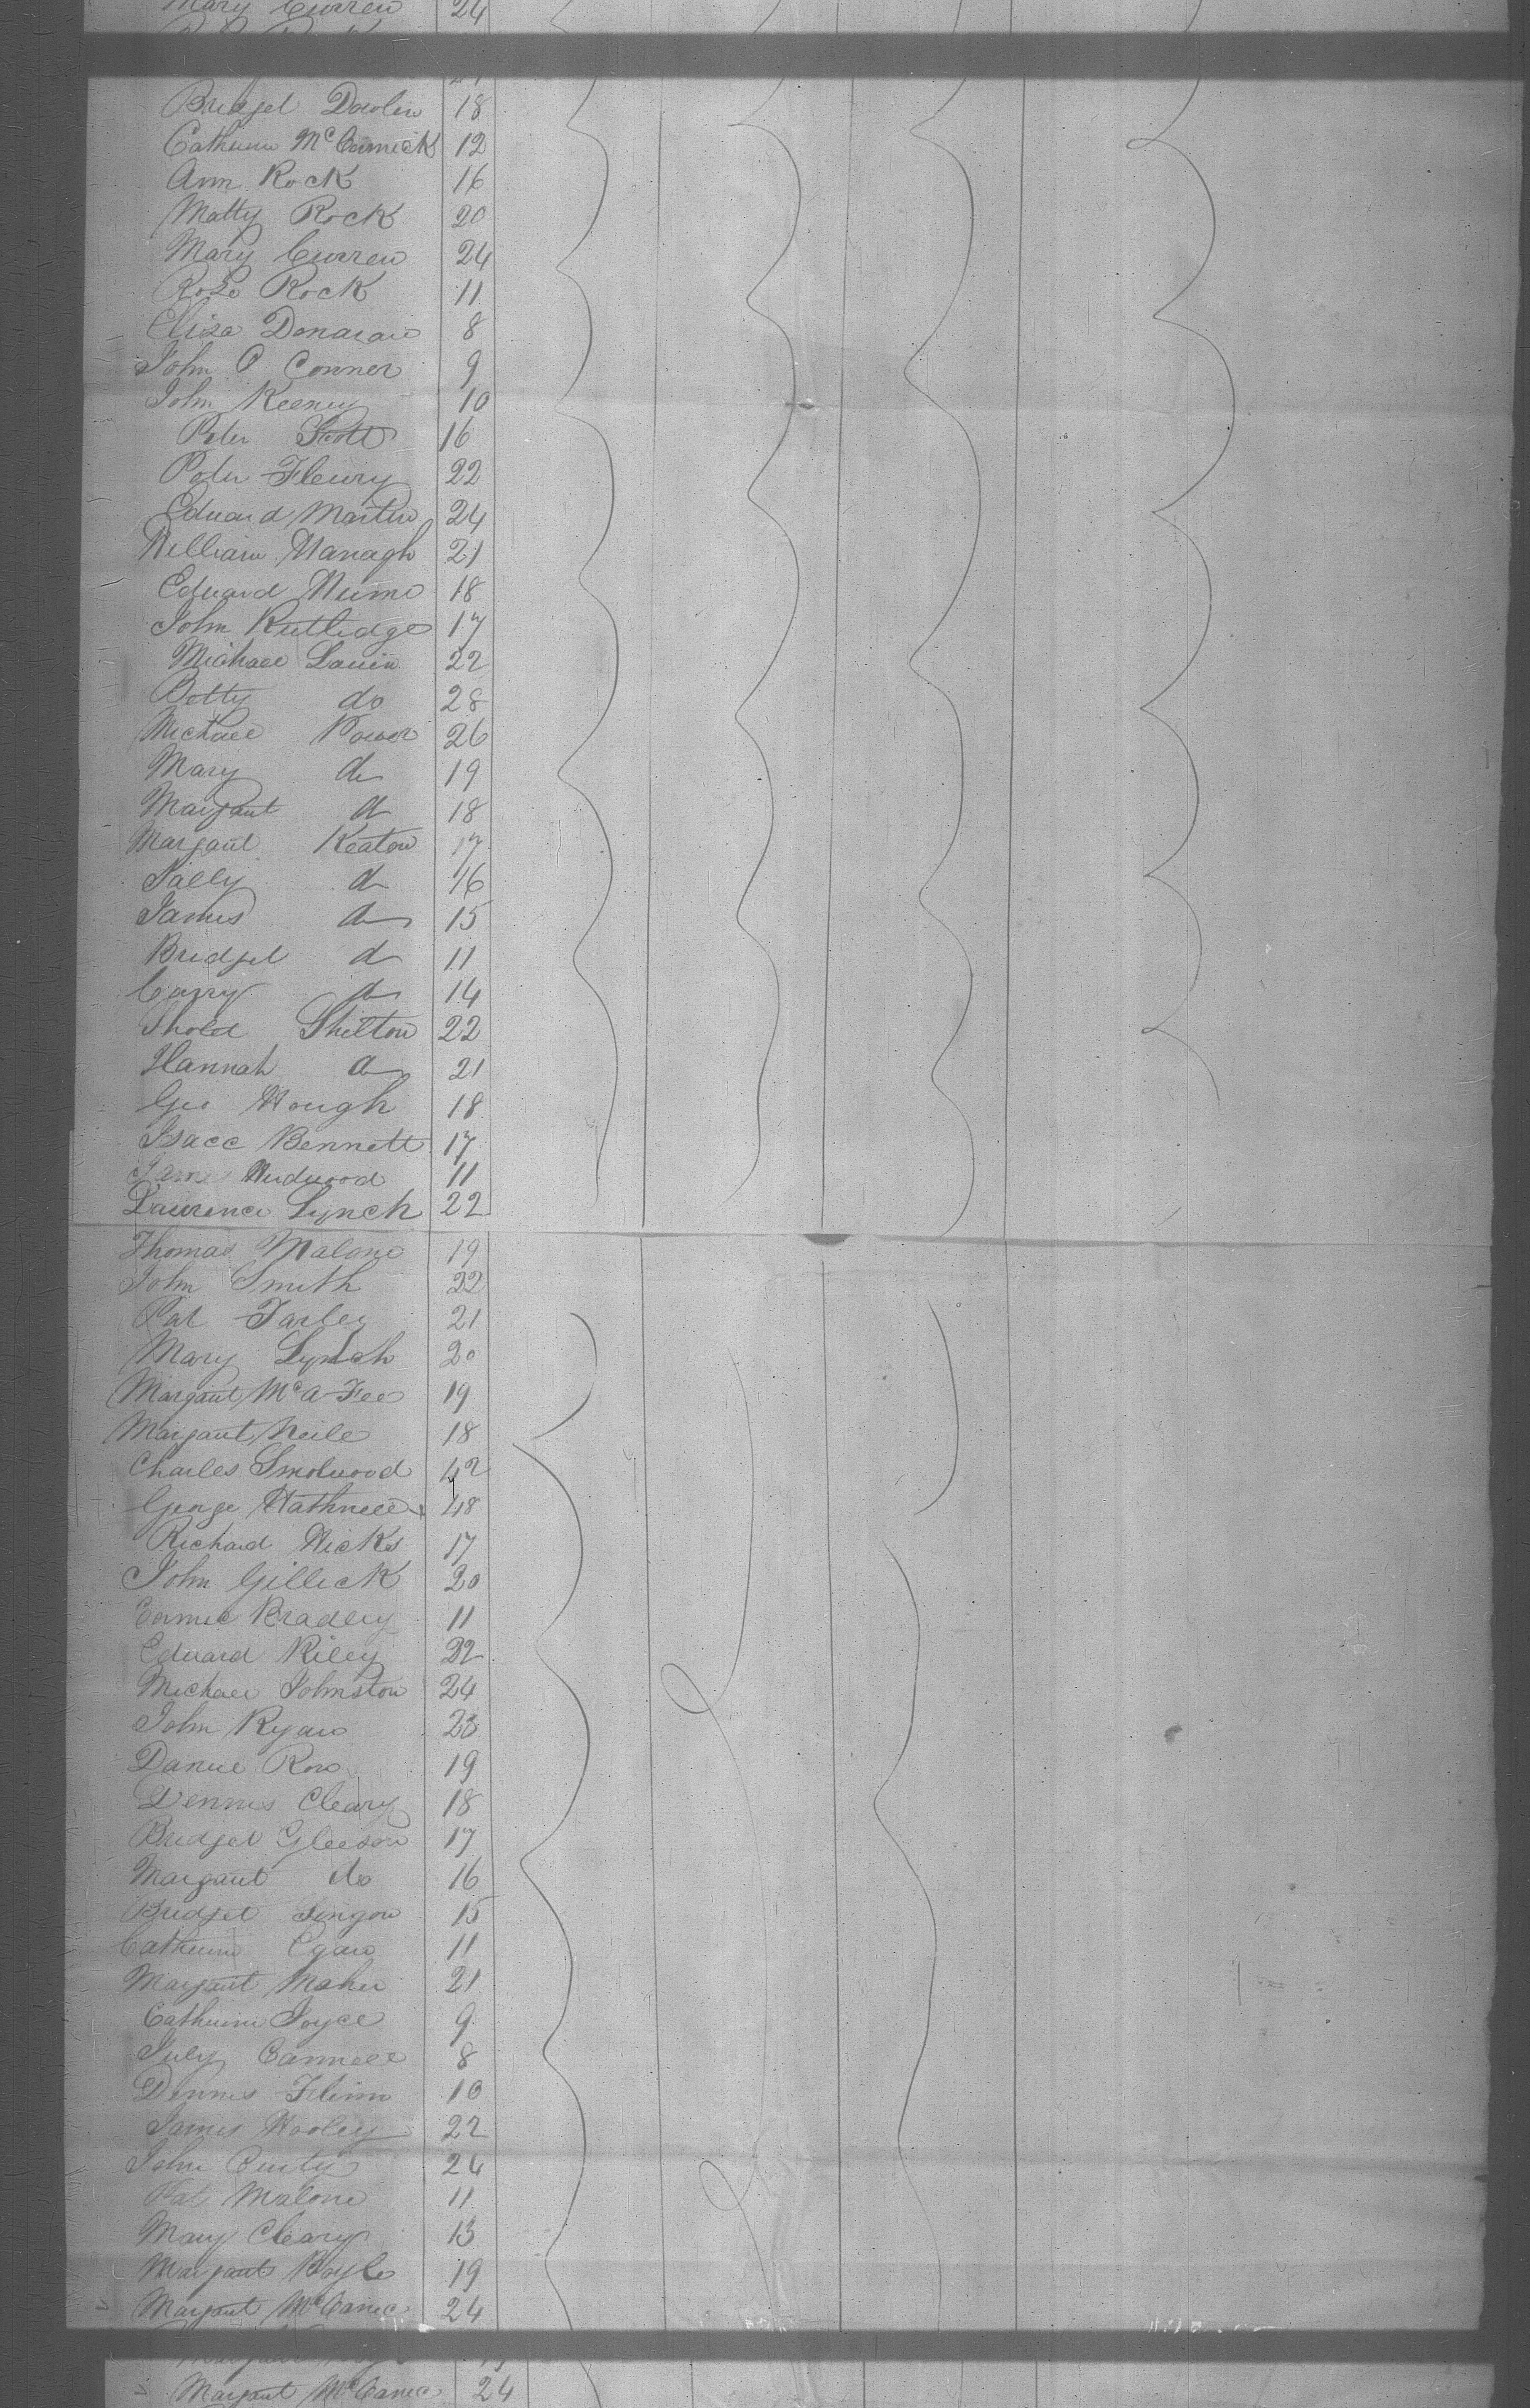 Mary Curren 24
Bridget Dowlin 18
Catherine McCormick 12
Ann Rock 16
Matty Rock 20
Mary Curren 24
Rose Rock 11
Eliza Donavan 8
John O Conner 9
John Keeney 10
Peter Scott 16
Peter Fleury 22
Edward Martin 24
William Hanagh 21
Edward Nimo 18
John Rutlidge 17
Michael Lavin 22
Betty do 28
Michael Power 26
Mary do 19
Margaret do 18
Margaret Keaton 17
Sally do 16
James do 15
Bridget do 11
Carry do 14
Shilton 22
Hannah do 21
Geo Hough 18
Isacc Bennett 17
James 11
Laurence Lynch 22
Thomas Malone 19
John Smith 22
Pat Farley 21
Mary Lynch 20
Margaret McAFee 19
Margaret Neile 18
Charles Smolwood 42
George 48
Richard Hicks 17
John Gillick 20
Bradley 11
Edward Riley 22
Michael Johnston 24
John Ryan 23
Daniel Row 19
Dennis Cleary 18
Bridget Gleeson 17
Margaret do 16
Bridget 15
Catherine Egan 11
Margaret Maher 21
Catherine Joyce 9
July Cannell 8
Dennis Flinn 10
James Hooley 22
John 24
Pat Malone 11
Mary Cleary 13
Margaret Boyle 19
Margaret 24
Margaret 24